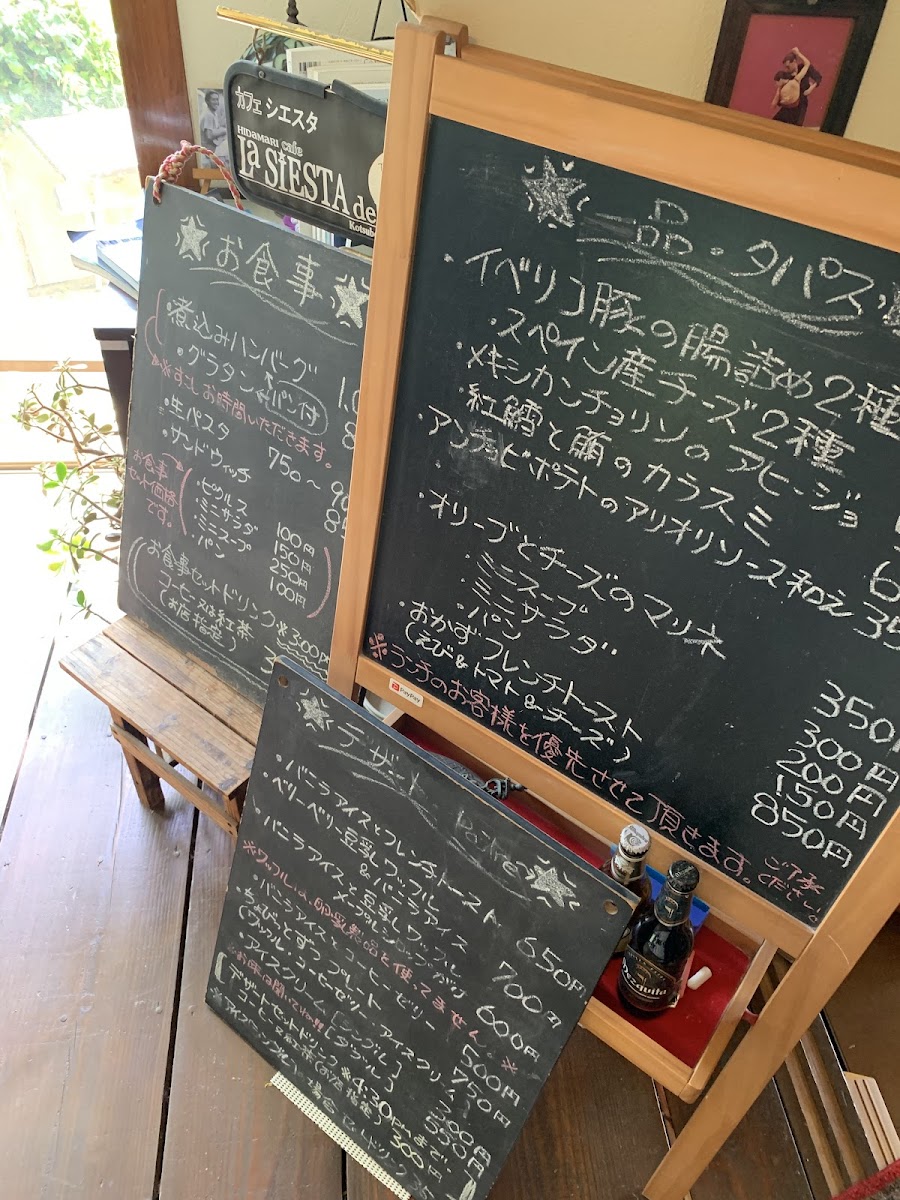 カフェ シエスタ
HIDAMARI cafe
La SiESTA de
Kotsub
お食事
煮込みハンバーグ 1.0
・グラタン パン付 8
※すこしお時間いただきます。
・生パスタ 750〜 90
・サンドウィッチ 85
お食事
セット価格
です。
・ピクルス 100円
・ミニサラダ 150円
・ミニスープ 250円
・パン 100円
お食事セットドリンク ※300円
コーヒー又は紅茶
(お店指定)
一品・タパス
・イベリコ豚の腸詰め2種
・スペイン産チーズ2種
・メキシカンチョリソのアヒージョ
・紅鱈と鮪のカラスミ 6
・アンチョビポテトのアリオリソース和え 35
・オリーブとチーズのマリネ 350
・ミニスープ 300円
・ミニサラダ 200円
・パン 150円
・おかずフレンチトースト 850円
(えび&トマト&チーズ)
※ランチのお客様を優先させて頂きます。ご了承ください。
PayPay
デザート
・バニラアイスとフレンチトースト 650円
・ベリーベリー豆乳ワッフル&バニラアイス 700円
・バニラアイスと豆乳ワッフル 600円
メープルシロップがけ
※ワッフルは、卵・乳製品を使ってません。※
・バニラアイスとコーヒーゼリー 500円
・ちょびっとずつプレート 750円
・アイスクリーム [シングル]
[ダブル] 550円
デザートセットドリンク ※4:30PMまで
コーヒー又は紅茶(お店指定) 300円
Dezquita